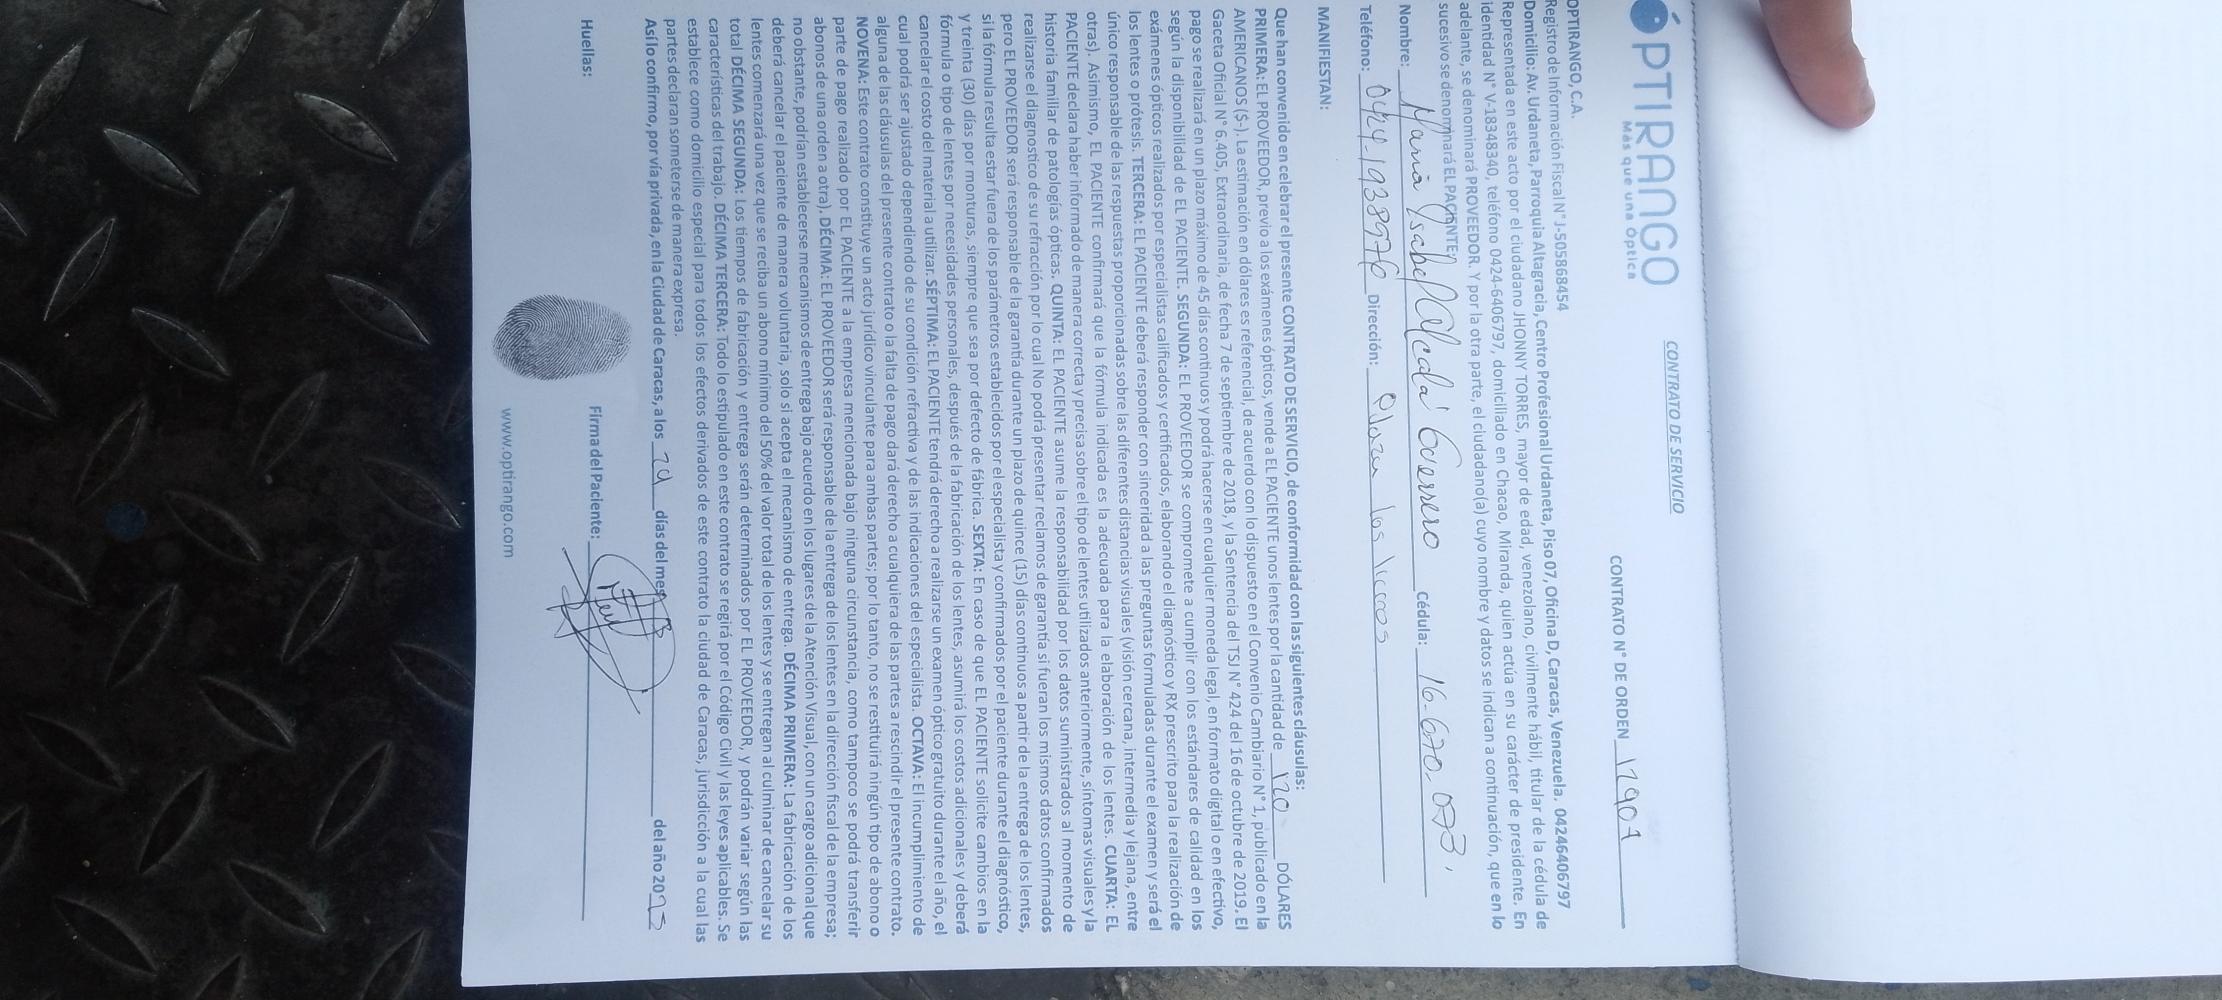 ÓPTIRANGO
Más que una Óptica
CONTRATO DE SERVICIO
CONTRATO N° DE ORDEN 17901
OPTIRANGO, C.A.
Registro de Información Fiscal N° J-505868454
Domicilio: Av. Urdaneta, Parroquia Altagracia, Centro Profesional Urdaneta, Piso 07, Oficina D, Caracas, Venezuela. 04246406797
Representada en este acto por el ciudadano JHONNY TORRES, mayor de edad, venezolano, civilmente hábil, titular de la cédula de
identidad N° V-18348340, teléfono 0424-6406797, domiciliado en Chacao, Miranda, quien actúa en su carácter de presidente. En
adelante, se denominará PROVEEDOR. Y por la otra parte, el ciudadano(a) cuyo nombre y datos se indican a continuación, que en lo
sucesivo se denominará EL PACIENTE:
Nombre: Maria Isabel Alcala Guerrero Cédula: 16.670.073
Teléfono: 0424-1938976 Dirección: Plaza los
MANIFIESTAN:
Que han convenido en celebrar el presente CONTRATO DE SERVICIO, de conformidad con las siguientes cláusulas:
PRIMERA: EL PROVEEDOR, previo a los exámenes ópticos, vende a EL PACIENTE unos lentes por la cantidad de 120 DÓLARES
AMERICANOS ($-). La estimación en dólares es referencial, de acuerdo con lo dispuesto en el Convenio Cambiario N° 1, publicado en la
Gaceta Oficial N° 6.405, Extraordinaria, de fecha 7 de septiembre de 2018, y la Sentencia del TSJ N° 424 del 16 de octubre de 2019. El
pago se realizará en un plazo máximo de 45 días continuos y podrá hacerse en cualquier moneda legal, en formato digital o en efectivo,
según la disponibilidad de EL PACIENTE. SEGUNDA: EL PROVEEDOR se compromete a cumplir con los estándares de calidad en los
exámenes ópticos realizados por especialistas calificados y certificados, elaborando el diagnóstico y RX prescrito para la realización de
los lentes o prótesis. TERCERA: EL PACIENTE deberá responder con sinceridad a las preguntas formuladas durante el examen y será el
único responsable de las respuestas proporcionadas sobre las diferentes distancias visuales (visión cercana, intermedia y lejana, entre
otras). Asimismo, EL PACIENTE confirmará que la fórmula indicada es la adecuada para la elaboración de los lentes. CUARTA: EL
PACIENTE declara haber informado de manera correcta y precisa sobre el tipo de lentes utilizados anteriormente, síntomas visuales y la
historia familiar de patologías ópticas. QUINTA: EL PACIENTE asume la responsabilidad por los datos suministrados al momento de
realizarse el diagnostico de su refracción por lo cual No podrá presentar reclamos de garantía si fueran los mismos datos confirmados
pero EL PROVEEDOR será responsable de la garantía durante un plazo de quince (15) días continuos a partir de la entrega de los lentes,
si la fórmula resulta estar fuera de los parámetros establecidos por el especialista y confirmados por el paciente durante el diagnóstico,
y treinta (30) días por monturas, siempre que sea por defecto de fábrica. SEXTA: En caso de que EL PACIENTE solicite cambios en la
fórmula o tipo de lentes por necesidades personales, después de la fabricación de los lentes, asumirá los costos adicionales y deberá
cancelar el costo del material a utilizar. SÉPTIMA: EL PACIENTE tendrá derecho a realizarse un examen óptico gratuito durante el año, el
cual podrá ser ajustado dependiendo de su condición refractiva y de las indicaciones del especialista. OCTAVA: El incumplimiento de
alguna de las cláusulas del presente contrato o la falta de pago dará derecho a cualquiera de las partes a rescindir el presente contrato.
NOVENA: Este contrato constituye un acto jurídico vinculante para ambas partes; por lo tanto, no se restituirá ningún tipo de abono o
parte de pago realizado por EL PACIENTE a la empresa mencionada bajo ninguna circunstancia, como tampoco se podrá transferir
abonos de una orden a otra). DÉCIMA: EL PROVEEDOR será responsable de la entrega de los lentes en la dirección fiscal de la empresa;
no obstante, podrían establecerse mecanismos de entrega bajo acuerdo en los lugares de la Atención Visual, con un cargo adicional que
deberá cancelar el paciente de manera voluntaria, solo si acepta el mecanismo de entrega. DÉCIMA PRIMERA: La fabricación de los
lentes comenzará una vez que se reciba un abono mínimo del 50% del valor total de los lentes y se entregan al culminar de cancelar su
total DÉCIMA SEGUNDA: Los tiempos de fabricación y entrega serán determinados por EL PROVEEDOR, y podrán variar según las
características del trabajo. DÉCIMA TERCERA: Todo lo estipulado en este contrato se regirá por el Código Civil y las leyes aplicables. Se
establece como domicilio especial para todos los efectos derivados de este contrato la ciudad de Caracas, jurisdicción a la cual las
partes declaran someterse de manera expresa.
Así lo confirmo, por vía privada, en la Ciudad de Caracas, a los 24 días del mes del año 2025
Huellas:
Firma del Paciente:
www.optirango.com